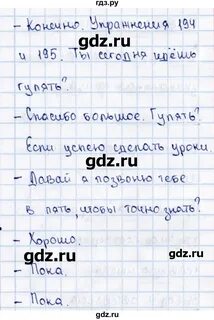 гдз.ру
- Конечно. Упражнения 194
и 195. Ты сегодня идёшь
гулять?
- Спасибо большое. Гулять?
Если успею сделать уроки.
- Давай я позвоню тебе
в пять, чтобы точно знать?
- Хорошо.
- Пока.
- Пока.
gdz.ru
gdz.ru
gdz.ru
gdz.ru
gdz.ru
gdz.ru
gdz.ru